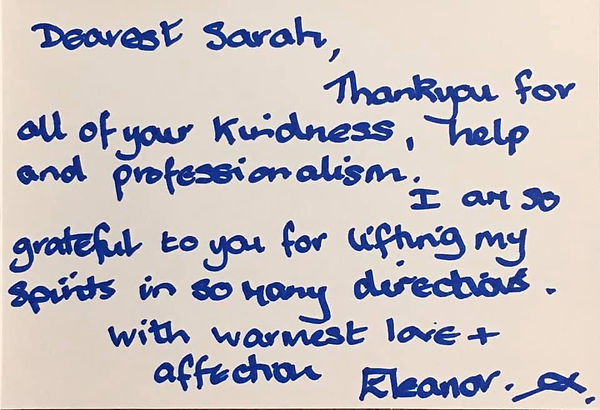 Dearest Sarah,
Thankyou for
all of your kindness, help
and professionalism.
I am so
grateful to you for lifting my
spirits in so many directions.
with warmest love +
affection Eleanor. x.